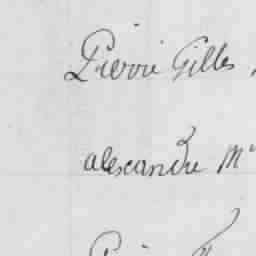 Pierre Gilles
alexandre M